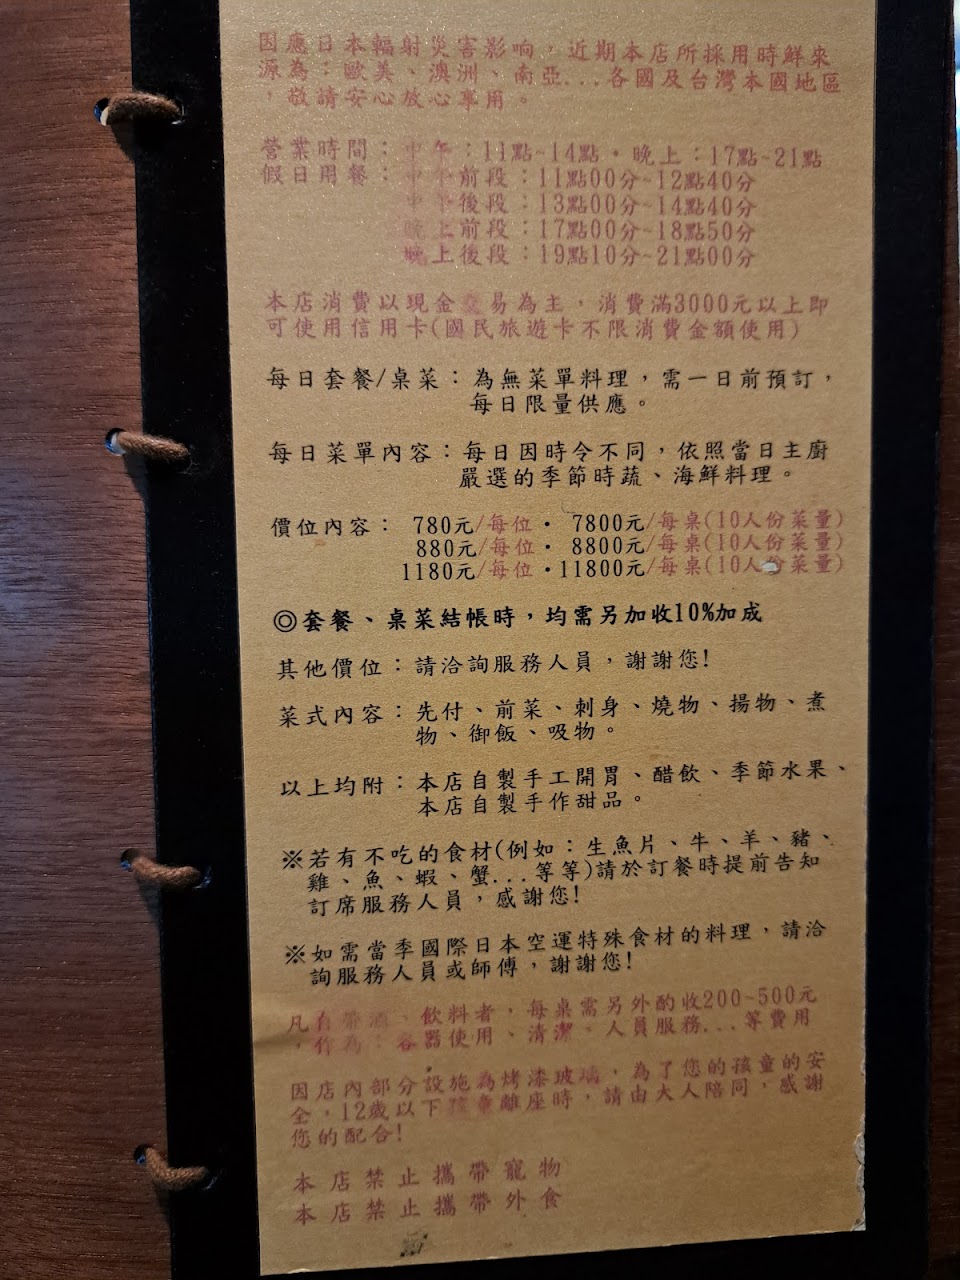 因應日本輻射災害影响，近期本店所採用時鮮來
源為：歐美、澳洲、南亞...各國及台灣本國地區
，敬請安心放心享用。
營業時間：中午：11點~14點・晚上：17點~21點
假日用餐：中午前段：11點00分~12點40分
中午後段：13點00分~14點40分
晚上前段：17點00分~18點50分
晚上後段：19點10分~21點00分
本店消費以現金交易為主，消費滿3000元以上即
可使用信用卡(國民旅遊卡不限消費金額使用)
每日套餐/桌菜：為無菜單料理，需一日前預訂，
每日限量供應。
每日菜單內容：每日因時令不同，依照當日主廚
嚴選的季節時蔬、海鮮料理。
價位內容：780元/每位・7800元/每桌(10人份菜量)
880元/每位・8800元/每桌(10人份菜量)
1180元/每位・11800元/每桌(10人份菜量)
◎套餐、桌菜結帳時，均需另加收10%加成
其他價位：請洽詢服務人員，謝謝您!
菜式內容：先付、前菜、刺身、燒物、揚物、煮
物、御飯、吸物。
以上均附：本店自製手工開胃、醋飲、季節水果、
本店自製手作甜品。
※若有不吃的食材(例如：生魚片、牛、羊、豬、
雞、魚、蝦、蟹...等等)請於訂餐時提前告知
訂席服務人員，感謝您!
※如需當季國際日本空運特殊食材的料理，請洽
詢服務人員或師傅，謝謝您!
凡自帶酒、飲料者，每桌需另外酌收200~500元
，作為：容器使用、清潔、人員服務...等費用
因店內部分設施為烤漆玻璃，為了您的孩童的安
全，12歲以下孩童離座時，請由大人陪同，感謝
您的配合!
本店禁止攜帶寵物
本店禁止攜帶外食